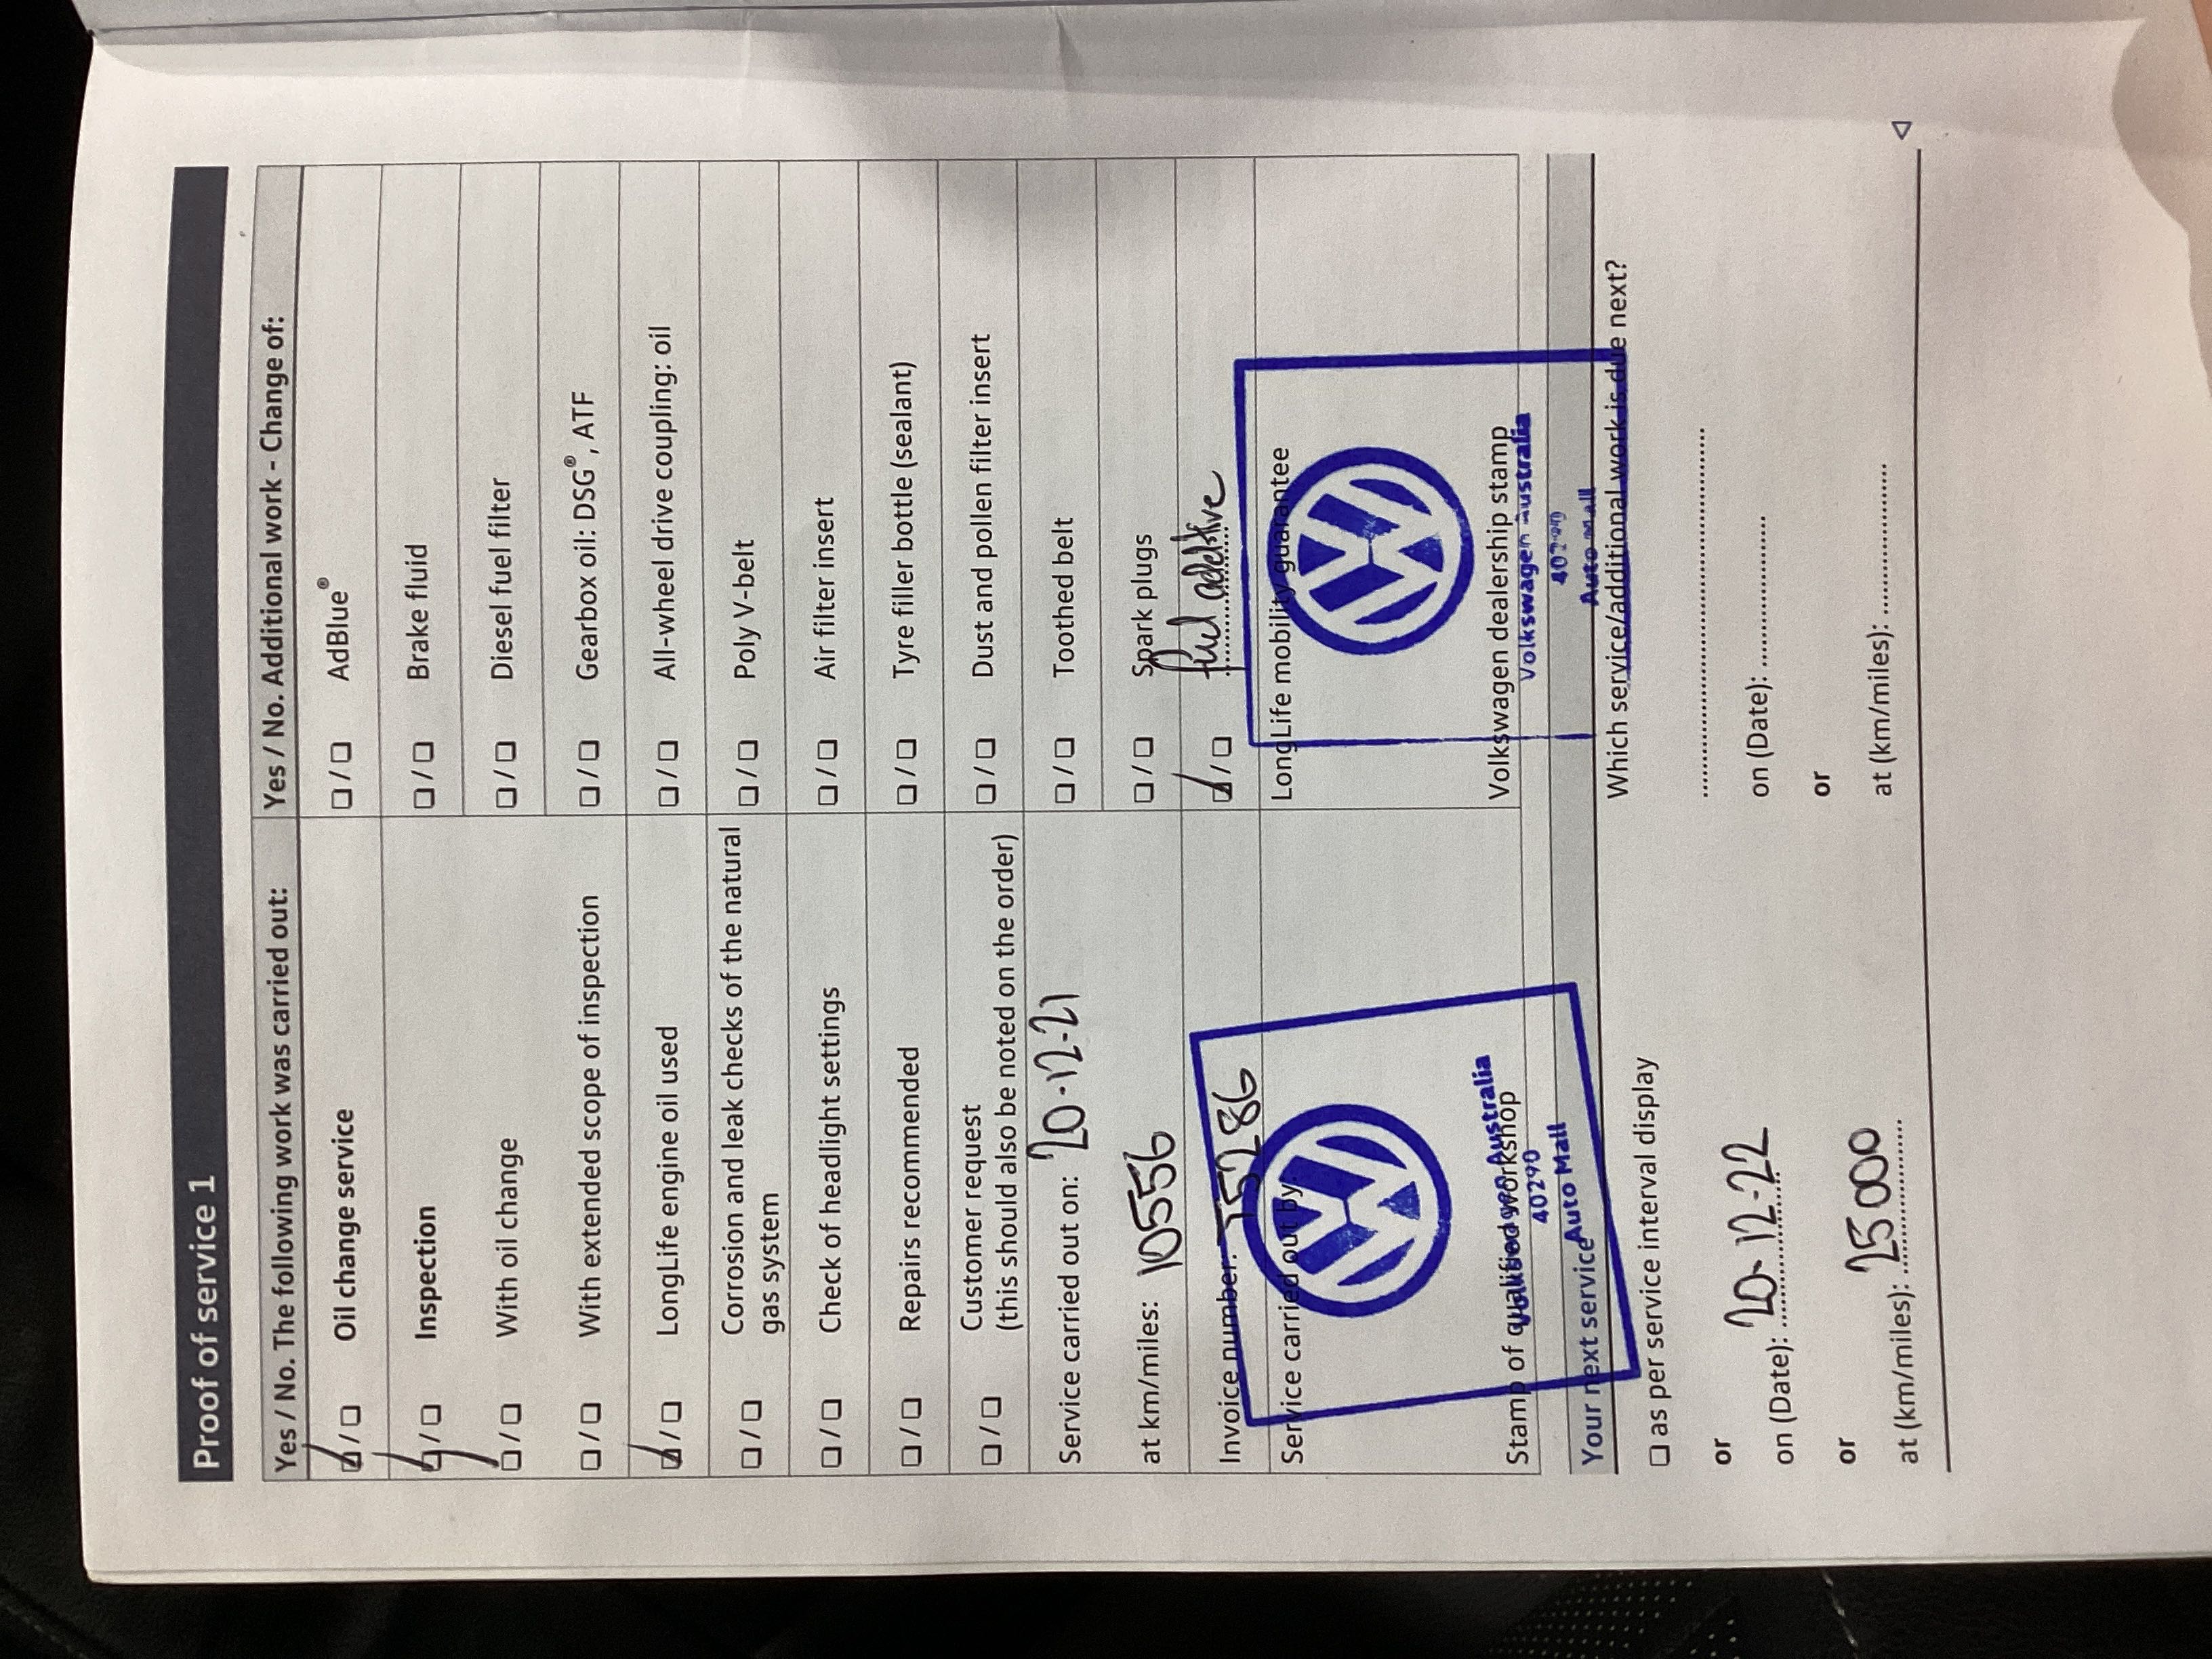 Proof of service 1
Yes / No. The following work was carried out:
Oil change service
Inspection
With oil change
With extended scope of inspection
LongLife engine oil used
Corrosion and leak checks of the natural
gas system
Check of headlight settings
Repairs recommended
Customer request
(this should also be noted on the order)
Service carried out on: 20-12-21
at km/miles: 10556
Invoice number: 75286
Service carried out by
Stamp of qualified workshop
Volkswagen Australia
40290
Auto Mall
Yes / No. Additional work - Change of:
AdBlue®
Brake fluid
Diesel fuel filter
Gearbox oil: DSG®, ATF
All-wheel drive coupling: oil
Poly V-belt
Air filter insert
Tyre filler bottle (sealant)
Dust and pollen filter insert
Toothed belt
Spark plugs
fuel additive
LongLife mobility guarantee
Volkswagen dealership stamp
Volkswagen Australia
40290
Auto Mall
Your next service
as per service interval display
or
on (Date): 20-12-22
or
at (km/miles): 25000
Which service/additional work is due next?
on (Date):
or
at (km/miles):